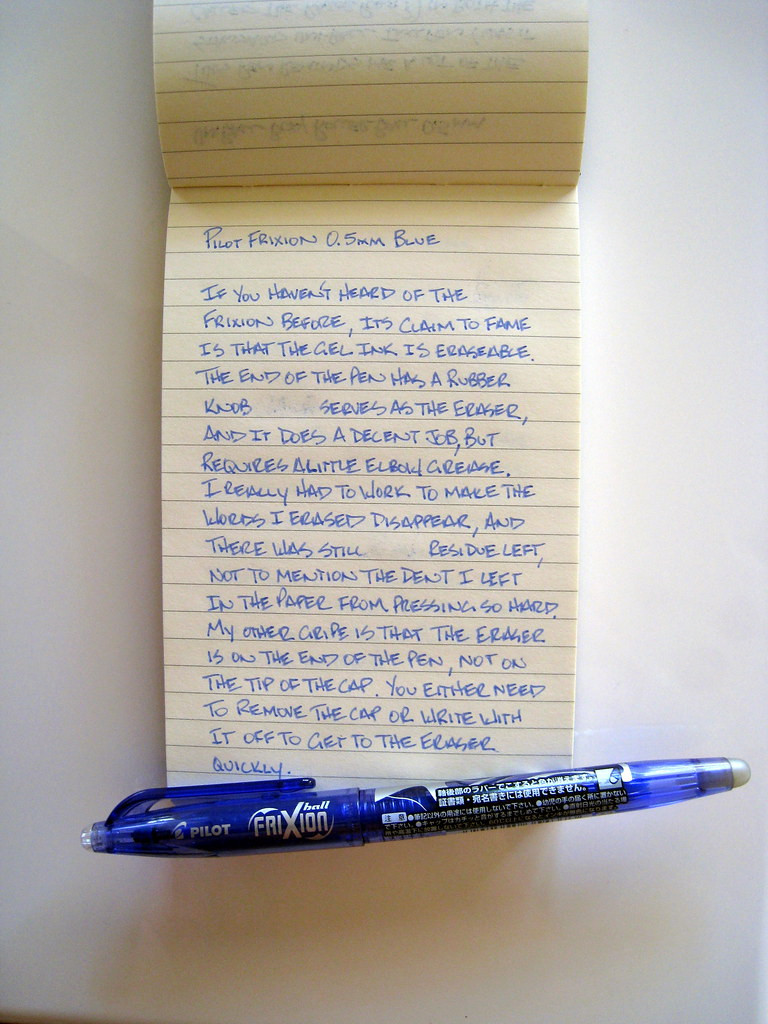 Pilot Frixion 0.5mm Blue
If you haven't heard of the
Frixion before, its claim to fame
is that the gel ink is eraseable.
The end of the pen has a rubber
knob serves as the eraser,
and it does a decent job, but
requires a little elbow grease.
I really had to work to make the
words I erased disappear, and
there was still residue left,
not to mention the dent I left
in the paper from pressing so hard.
My other gripe is that the eraser
is on the end of the pen, not on
the tip of the cap. You either need
to remove the cap or write with
it off to get to the eraser
quickly.
PILOT FRIXION ball
軸後部のラバーでこすると色が消えます。
証書類・宛名書きには使用できません。
注意 ●筆記以外の用途には使用しないで下さい。●幼児の手の届く所に置かない